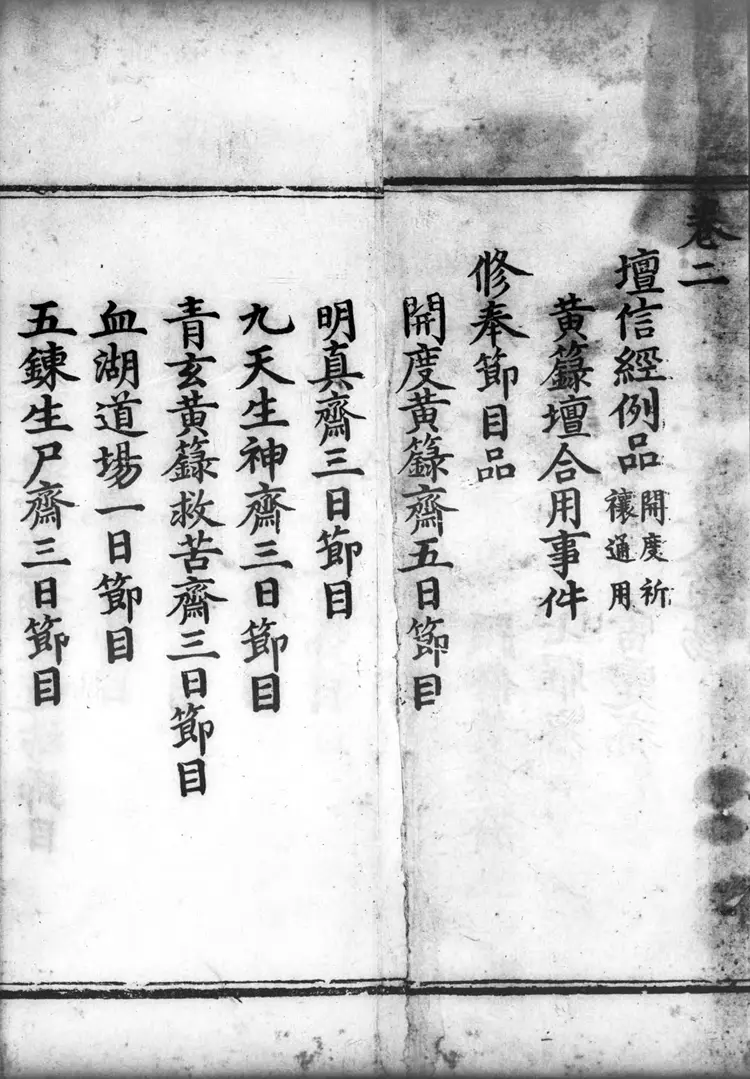 卷二
壇信經例品開度祈禳通用
黃籙壇合用事件
修奉節目品
開度黃籙齋五日節目
明真齋三日節目
九天生神齋三日節目
青玄黃籙救苦齋三日節目
血湖道場一日節目
五鍊生尸齋三日節目